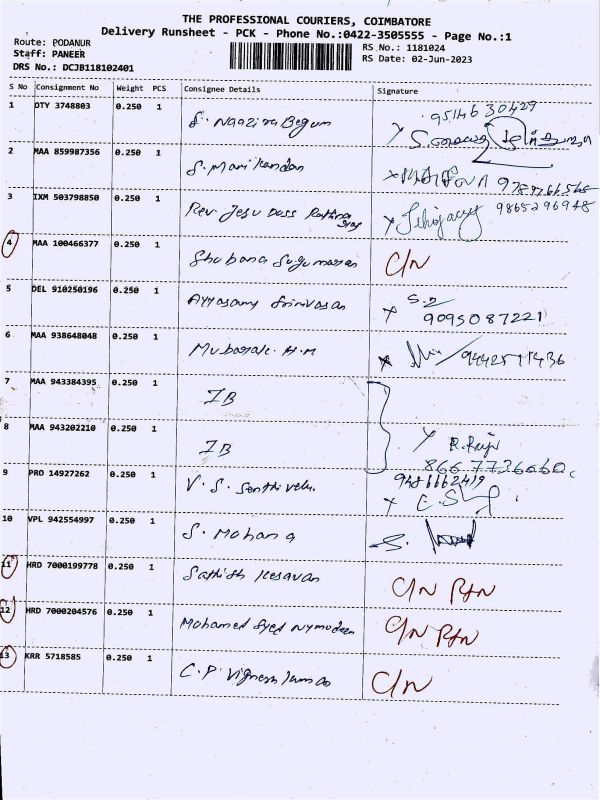 THE PROFESSIONAL COURIERS, COIMBATORE
Delivery Runsheet - PCK - Phone No.:0422-3505555 - Page No.:1
Route: PODANUR
RS No.: 1181024
Staff: PANEER
RS Date: 02-Jun-2023
DRS No.: DCJB118102401
S No Consignment No Weight PCS Consignee Details Signature
1 DTY 3748803 0.250 1 S. Naazira Begum
2 MAA 859987356 0.250 1 S. Manikandan
3 IXM 503798850 0.250 1 Rev. Jesu Doss Rathna
9865296948
4 MAA 100466377 0.250 1 Shobana Sugumaran C/N
5 DEL 910250196 0.250 1 Ayyasamy Srinivasan
9095087221
6 MAA 938648048 0.250 1 Mubarak. H.M
7 MAA 943384395 0.250 1 IB
8 MAA 943202210 0.250 1 IB X R.Raja
9 PRO 14927262 0.250 1 V. S. Senthivelu.
9486662419
10 VPL 942554997 0.250 1 S. Mohana S.
11 HRD 7000199778 0.250 1 Sathish Kesavan C/N RTN
12 HRD 7000204576 0.250 1 Mohamed Syed Nymudeen C/N RTN
13 KRR 5718585 0.250 1 C. P. Vigneshkumar C/N